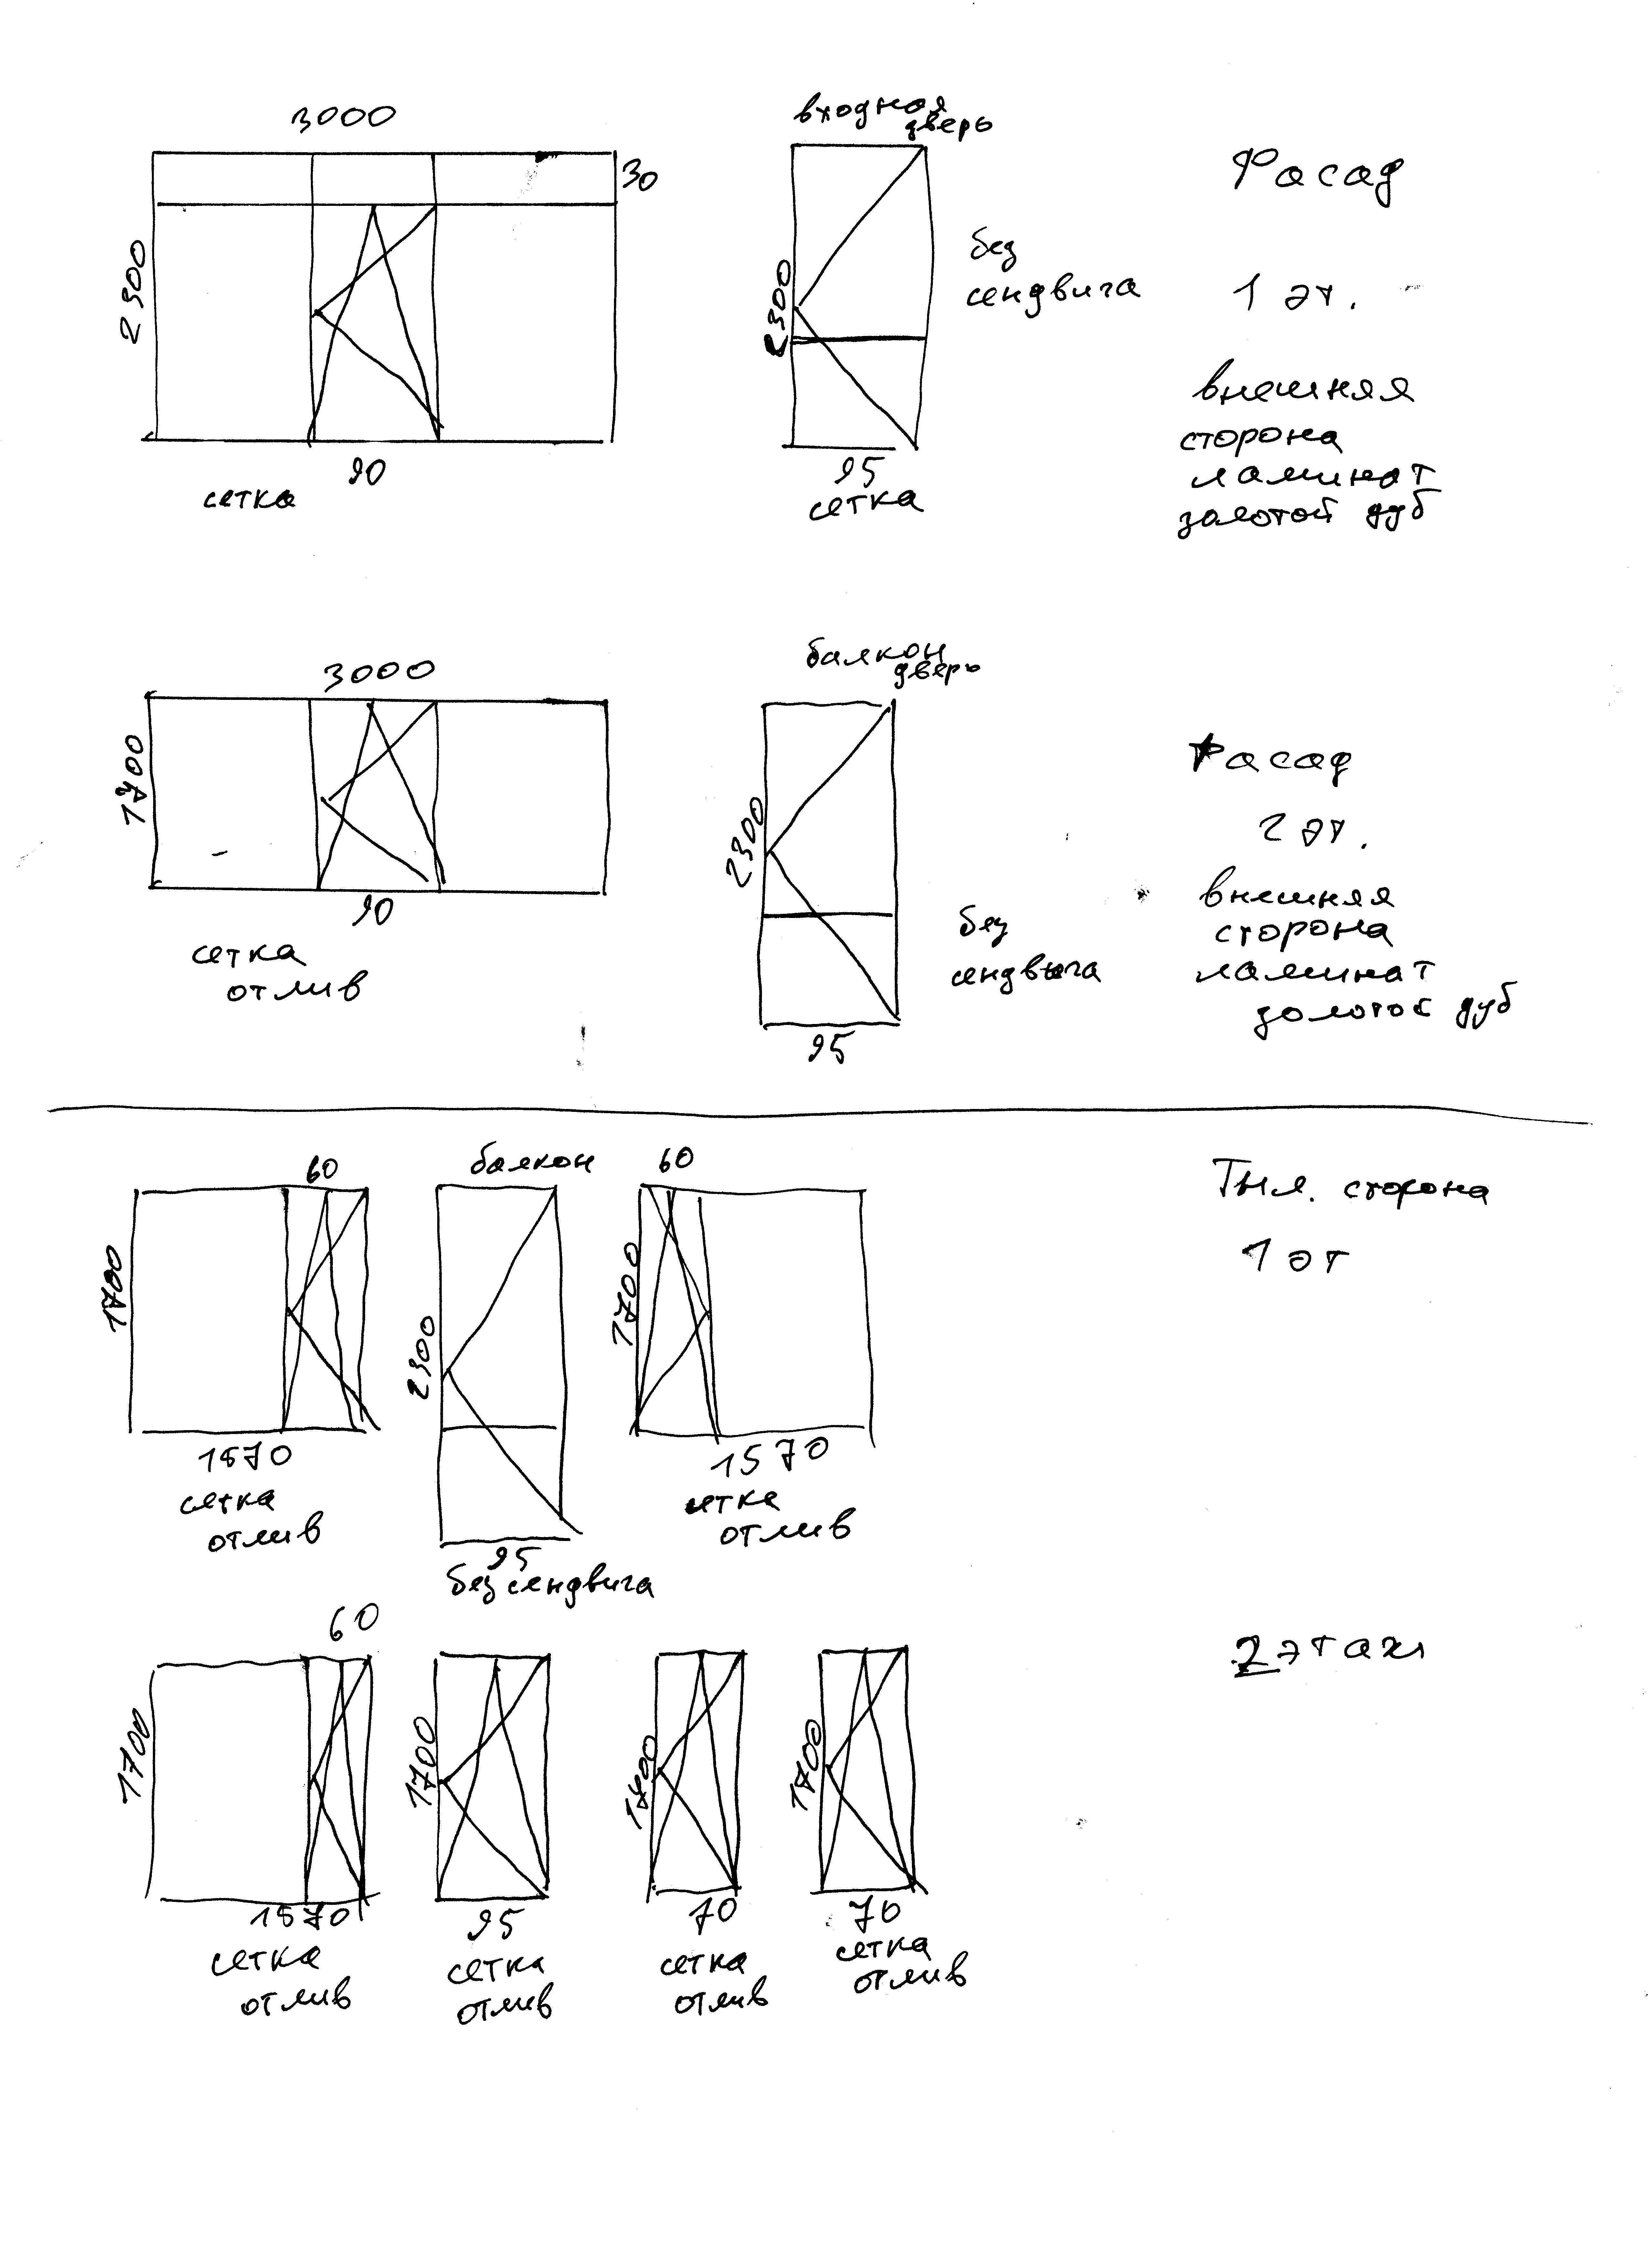 3000
30
2300
90
сетка
входная
дверь
2300
95
сетка
без
сендвича
Фасад
1 эт.
внешняя
сторона
ламинат
золотой дуб
3000
1700
90
сетка
отлив
балкон
дверь
2300
95
без
сендвича
Фасад
2 эт.
внешняя
сторона
ламинат
золотой дуб
60
1700
1570
сетка
отлив
балкон
2300
95
без сендвича
60
1700
1570
сетка
отлив
Тыл. сторона
1 эт
60
1700
1570
сетка
отлив
1700
95
сетка
отлив
1700
70
сетка
отлив
1700
70
сетка
отлив
2 этаж